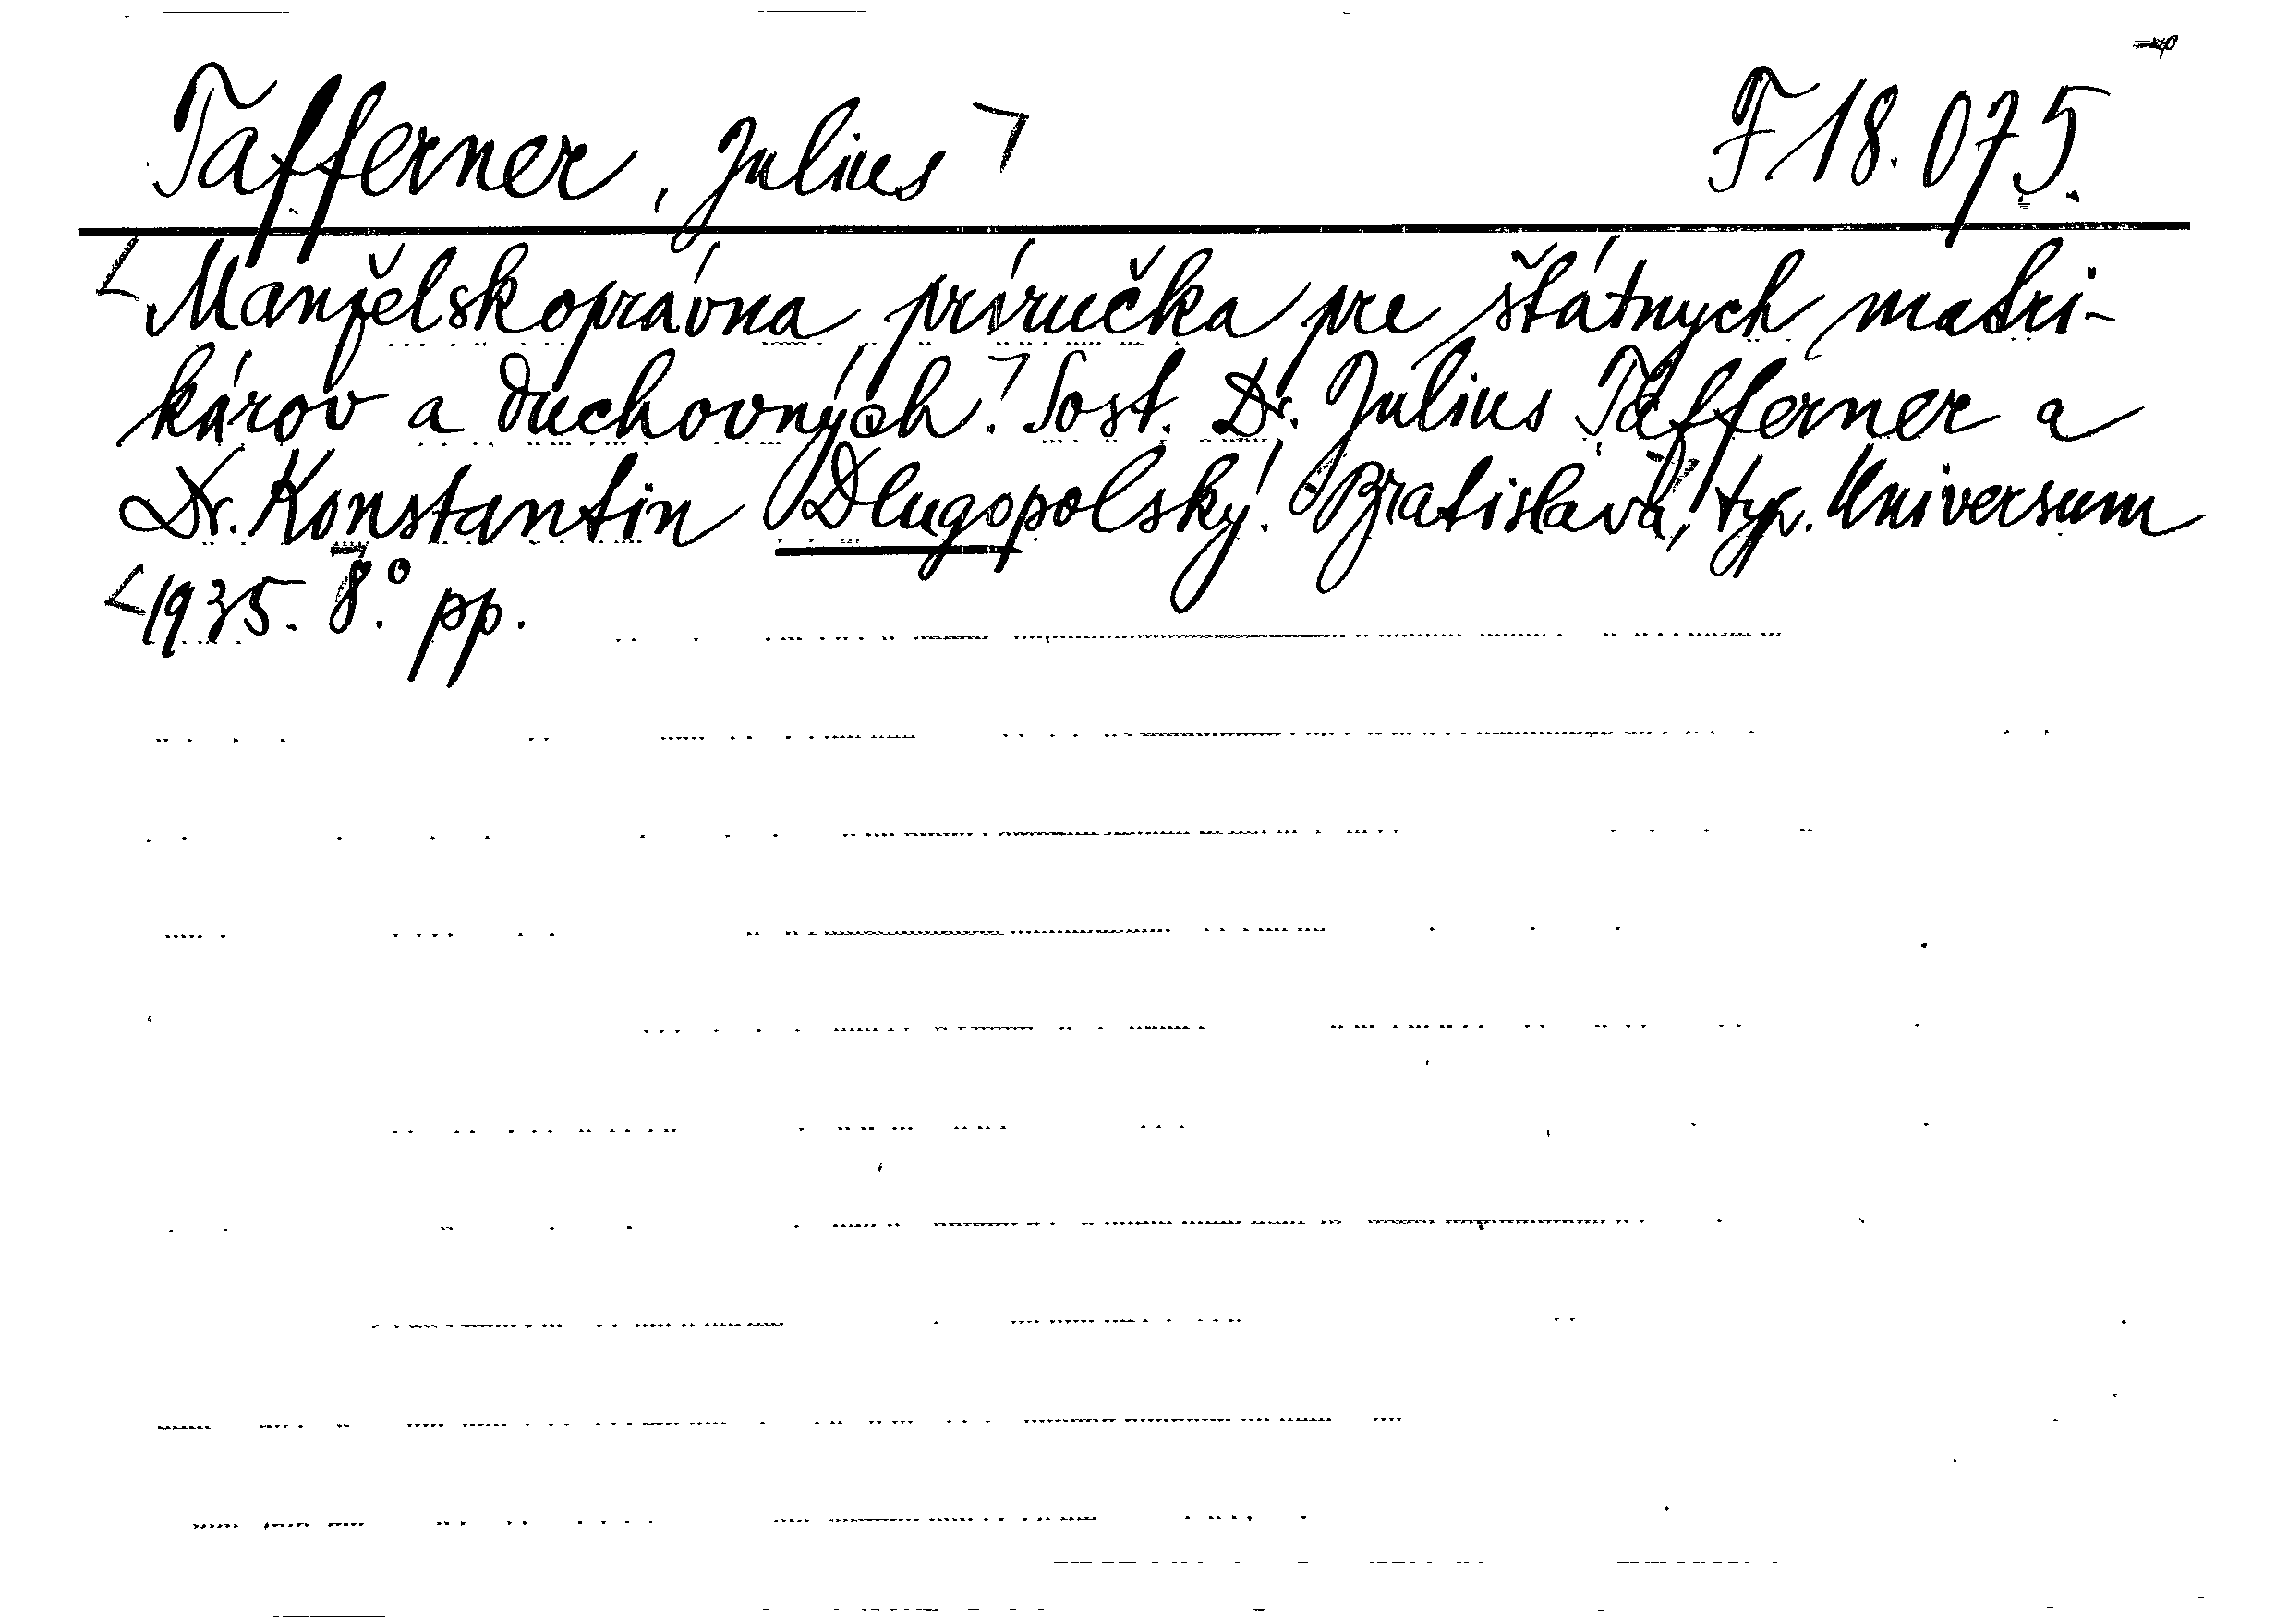 Tafferner, Julius
F 18.075.
Manželskoprávna príručka pre štátnych matri-
károv a duchovných. Sost. Dr. Julius Tafferner a
Dr. Konstantin Dlugopolský. Bratislava, typ. Universum
1935. 8°. pp.